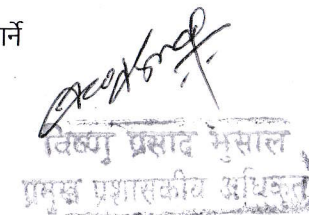 गर्ने
विष्णु प्रसाद भुसाल
प्रमुख प्रशासकीय अधिकृत